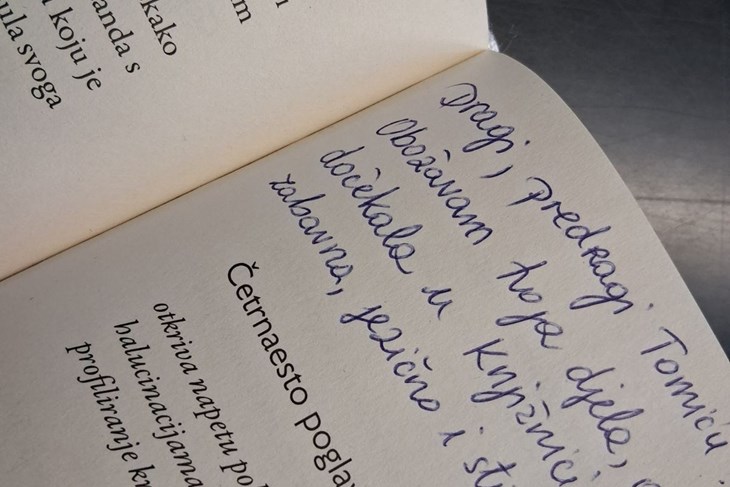 m
kako
anda s
koju je
ula svoga
Dragi, predragi Tomiću
Obožavam tvoja djela,
dočekala u knjižnici
zabavna, jezično i sti
Četrnaesto poglav
otkriva napetu po
halucinacijama
profiliranje kn